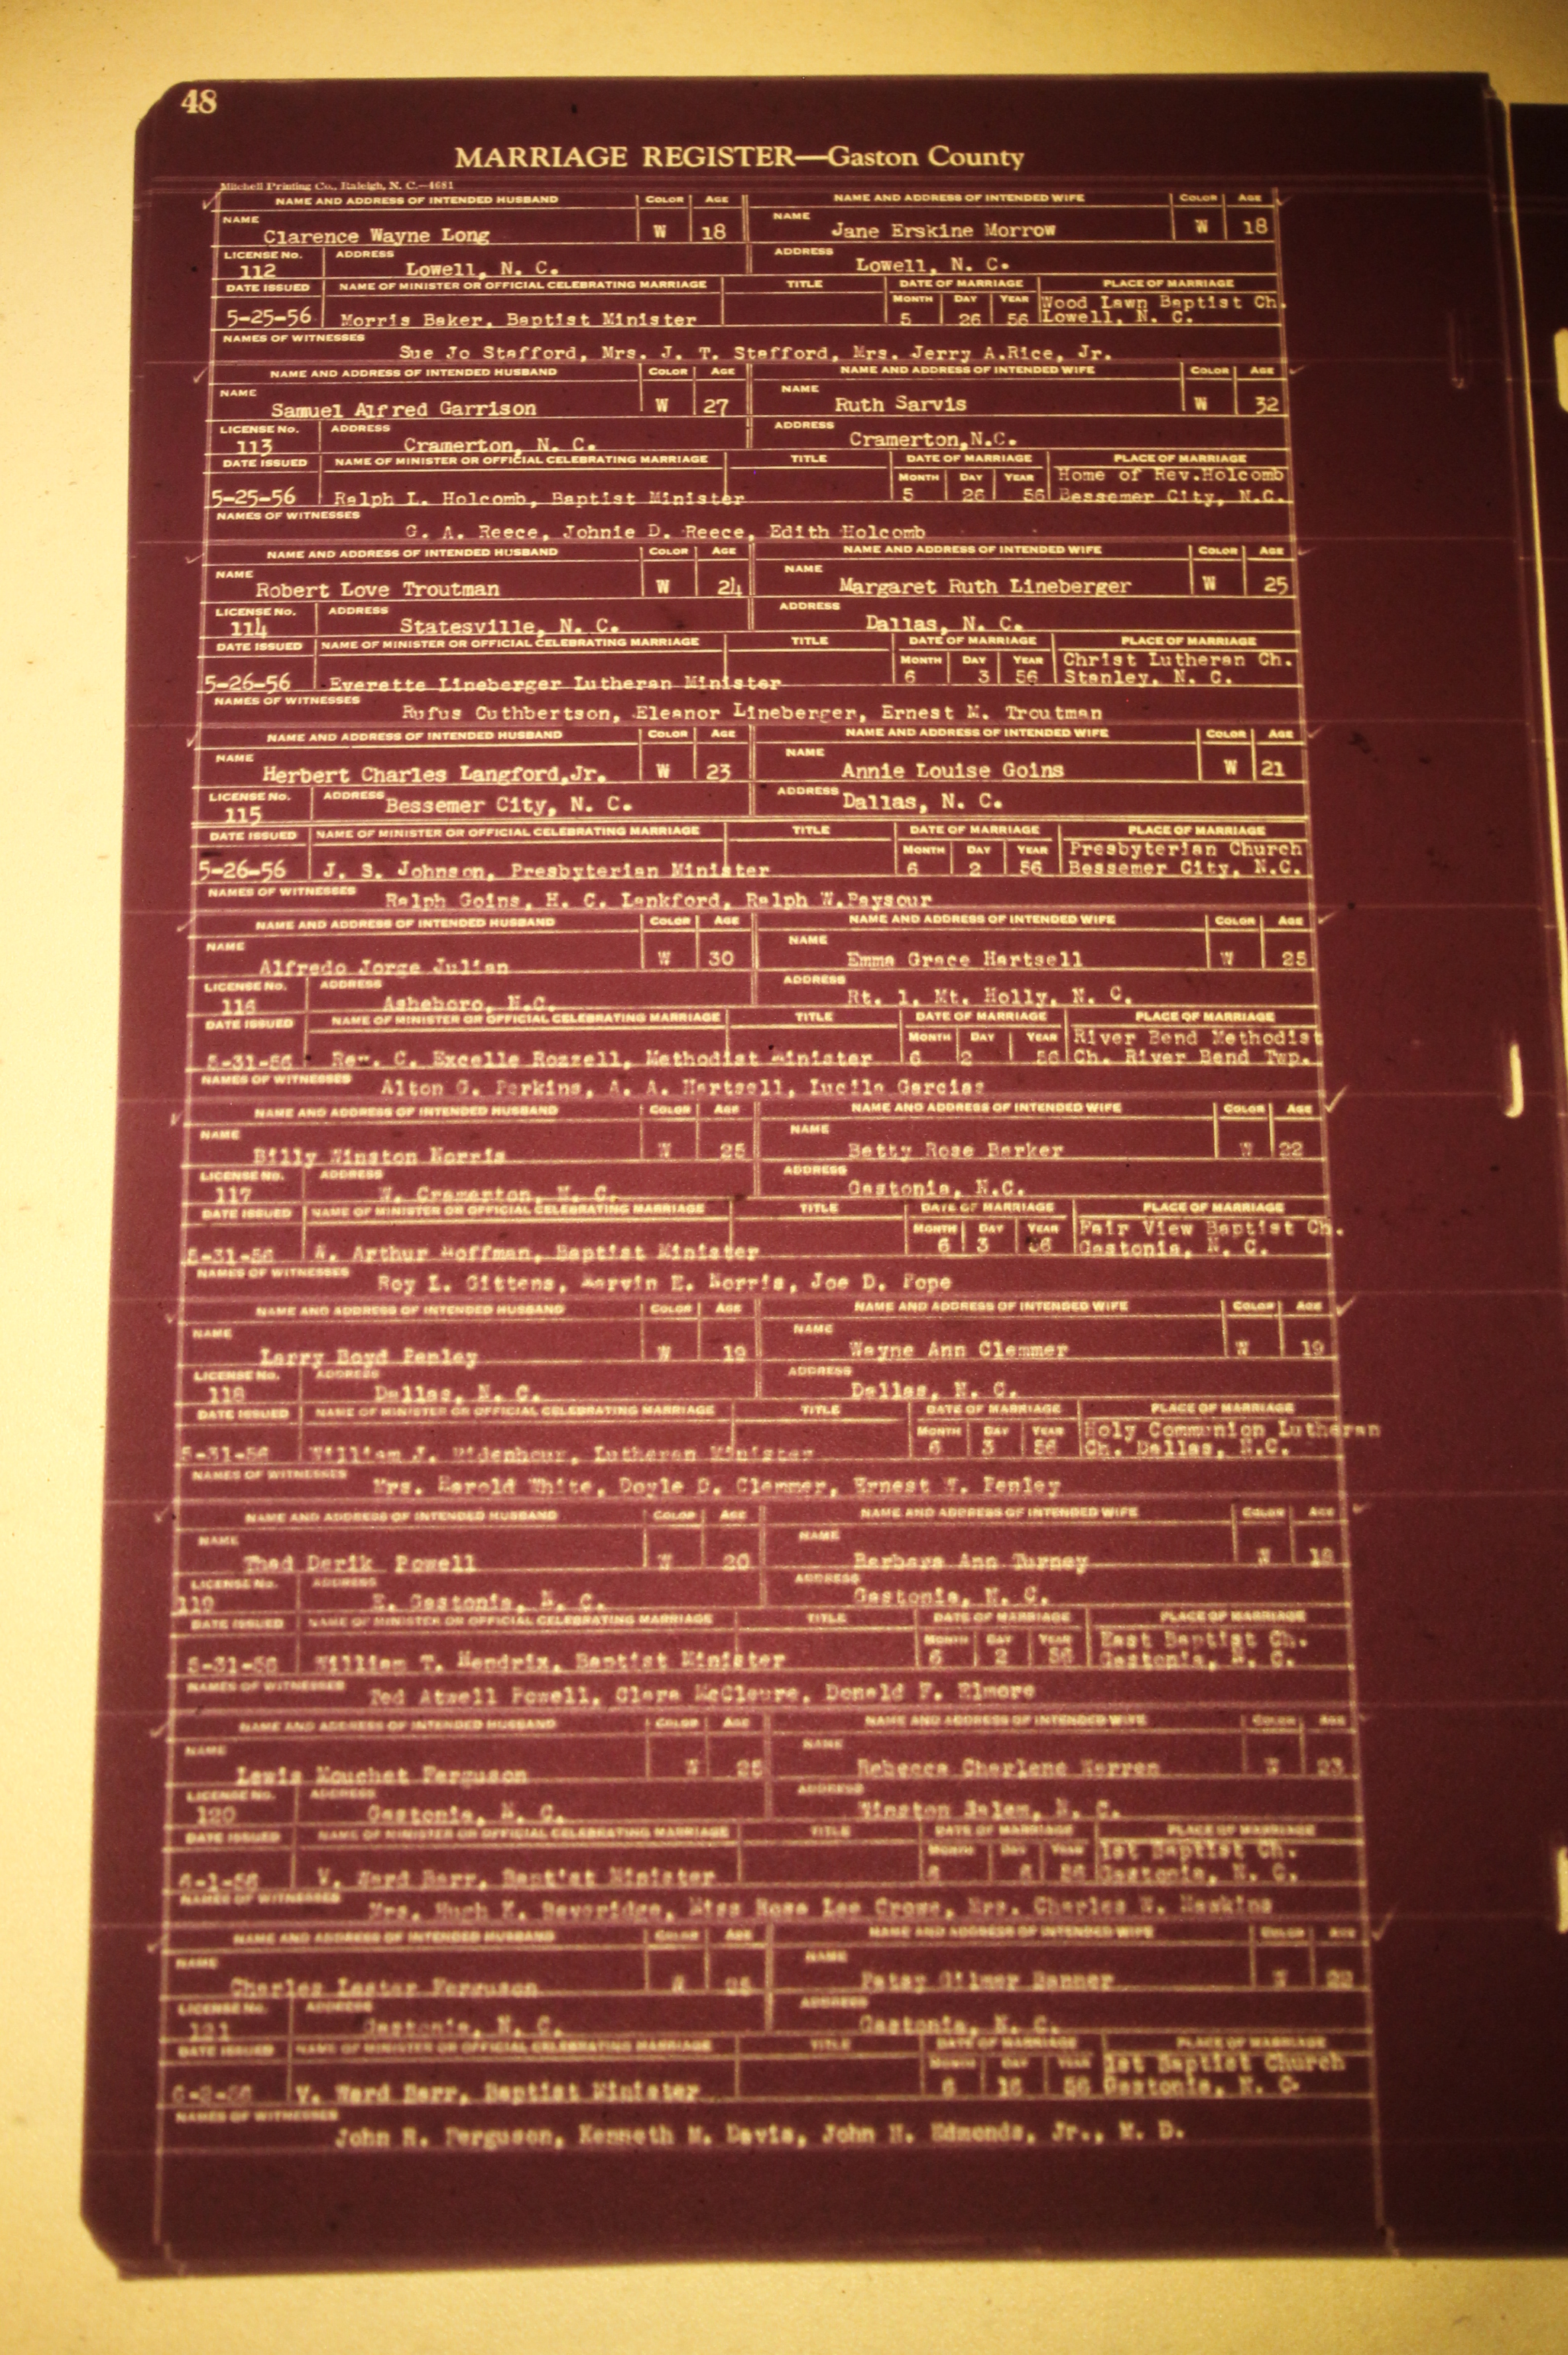 48
MARRIAGE REGISTER—Gaston County
Mitchell Printing Co., Raleigh, N. C.—4681
NAME AND ADDRESS OF INTENDED HUSBAND COLOR AGE NAME AND ADDRESS OF INTENDED WIFE COLOR AGE
NAME Clarence Wayne Long W 18 NAME Jane Erskine Morrow W 18
LICENSE No. 112 ADDRESS Lowell, N. C. ADDRESS Lowell, N. C.
DATE ISSUED NAME OF MINISTER OR OFFICIAL CELEBRATING MARRIAGE TITLE DATE OF MARRIAGE PLACE OF MARRIAGE
MONTH DAY YEAR Wood Lawn Baptist Ch.
5-25-56 Morris Baker, Baptist Minister 5 26 56 Lowell, N. C.
NAMES OF WITNESSES Sue Jo Stafford, Mrs. J. T. Stafford, Mrs. Jerry A.Rice, Jr.
NAME AND ADDRESS OF INTENDED HUSBAND COLOR AGE NAME AND ADDRESS OF INTENDED WIFE COLOR AGE
NAME Samuel Alfred Garrison W 27 NAME Ruth Sarvis W 32
LICENSE No. 113 ADDRESS Cramerton, N. C. ADDRESS Cramerton,N.C.
DATE ISSUED NAME OF MINISTER OR OFFICIAL CELEBRATING MARRIAGE TITLE DATE OF MARRIAGE PLACE OF MARRIAGE
MONTH DAY YEAR Home of Rev.Holcomb
5-25-56 Ralph L. Holcomb, Baptist Minister 5 26 56 Bessemer City, N.C.
NAMES OF WITNESSES G. A. Reece, Johnie D. Reece, Edith Holcomb
NAME AND ADDRESS OF INTENDED HUSBAND COLOR AGE NAME AND ADDRESS OF INTENDED WIFE COLOR AGE
NAME Robert Love Troutman W 24 NAME Margaret Ruth Lineberger W 25
LICENSE No. 114 ADDRESS Statesville, N. C. ADDRESS Dallas, N. C.
DATE ISSUED NAME OF MINISTER OR OFFICIAL CELEBRATING MARRIAGE TITLE DATE OF MARRIAGE PLACE OF MARRIAGE
MONTH DAY YEAR Christ Lutheran Ch.
5-26-56 Everette Lineberger Lutheran Minister 6 3 56 Stanley, N. C.
NAMES OF WITNESSES Rufus Cuthbertson, Eleanor Lineberger, Ernest M. Troutman
NAME AND ADDRESS OF INTENDED HUSBAND COLOR AGE NAME AND ADDRESS OF INTENDED WIFE COLOR AGE
NAME Herbert Charles Langford,Jr. W 23 NAME Annie Louise Goins W 21
LICENSE No. 115 ADDRESS Bessemer City, N. C. ADDRESS Dallas, N. C.
DATE ISSUED NAME OF MINISTER OR OFFICIAL CELEBRATING MARRIAGE TITLE DATE OF MARRIAGE PLACE OF MARRIAGE
MONTH DAY YEAR Presbyterian Church
5-26-56 J. S. Johnson, Presbyterian Minister 6 2 56 Bessemer City, N.C.
NAMES OF WITNESSES Ralph Goins, H. C. Lankford, Ralph W.Paysour
NAME AND ADDRESS OF INTENDED HUSBAND COLOR AGE NAME AND ADDRESS OF INTENDED WIFE COLOR AGE
NAME Alfredo Jorge Julian W 30 NAME Emma Grace Hartsell W 25
LICENSE No. 116 ADDRESS Asheboro, N.C. ADDRESS Rt. 1, Mt. Holly, N. C.
DATE ISSUED NAME OF MINISTER OR OFFICIAL CELEBRATING MARRIAGE TITLE DATE OF MARRIAGE PLACE OF MARRIAGE
MONTH DAY YEAR River Bend Methodist
5-31-56 Rev. C. Excelle Rozzell, Methodist Minister 6 2 56 Ch. River Bend Twp.
NAMES OF WITNESSES Alton G. Perkins, A. A. Hartsell, Lucila Garcias
NAME AND ADDRESS OF INTENDED HUSBAND COLOR AGE NAME AND ADDRESS OF INTENDED WIFE COLOR AGE
NAME Billy Winston Norris W 25 NAME Betty Rose Barker W 22
LICENSE No. 117 ADDRESS W. Cramerton, N. C. ADDRESS Gastonia, N.C.
DATE ISSUED NAME OF MINISTER OR OFFICIAL CELEBRATING MARRIAGE TITLE DATE OF MARRIAGE PLACE OF MARRIAGE
MONTH DAY YEAR Fair View Baptist Ch.
5-31-56 W. Arthur Hoffman, Baptist Minister 6 3 56 Gastonia, N. C.
NAMES OF WITNESSES Roy L. Gittens, Marvin E. Norris, Joe D. Pope
NAME AND ADDRESS OF INTENDED HUSBAND COLOR AGE NAME AND ADDRESS OF INTENDED WIFE COLOR AGE
NAME Larry Boyd Penley W 19 NAME Wayne Ann Clemmer W 19
LICENSE No. 118 ADDRESS Dallas, N. C. ADDRESS Dallas, N. C.
DATE ISSUED NAME OF MINISTER OR OFFICIAL CELEBRATING MARRIAGE TITLE DATE OF MARRIAGE PLACE OF MARRIAGE
MONTH DAY YEAR Holy Communion Lutheran
5-31-56 William J. Ridenhour, Lutheran Minister 6 3 56 Ch. Dallas, N.C.
NAMES OF WITNESSES Mrs. Harold White, Doyle D. Clemmer, Ernest W. Penley
NAME AND ADDRESS OF INTENDED HUSBAND COLOR AGE NAME AND ADDRESS OF INTENDED WIFE COLOR AGE
NAME Thad Derik Powell W 20 NAME Barbara Ann Turney W 18
LICENSE No. 119 ADDRESS E. Gastonia, N. C. ADDRESS Gastonia, N. C.
DATE ISSUED NAME OF MINISTER OR OFFICIAL CELEBRATING MARRIAGE TITLE DATE OF MARRIAGE PLACE OF MARRIAGE
MONTH DAY YEAR East Baptist Ch.
5-31-56 William T. Hendrix, Baptist Minister 6 2 56 Gastonia, N. C.
NAMES OF WITNESSES Ted Atwell Powell, Clara McCleure, Donald F. Elmore
NAME AND ADDRESS OF INTENDED HUSBAND COLOR AGE NAME AND ADDRESS OF INTENDED WIFE COLOR AGE
NAME Lewis Mouchet Ferguson W 25 NAME Rebecca Charlene Warren W 23
LICENSE No. 120 ADDRESS Gastonia, N. C. ADDRESS Winston Salem, N. C.
DATE ISSUED NAME OF MINISTER OR OFFICIAL CELEBRATING MARRIAGE TITLE DATE OF MARRIAGE PLACE OF MARRIAGE
MONTH DAY YEAR 1st Baptist Ch.
6-1-56 V. Ward Barr, Baptist Minister 56 Gastonia, N. C.
NAMES OF WITNESSES Mrs. Hugh K. Beveridge, Miss Rose Lee Crowe, Mrs. Charles W. Hawkins
NAME AND ADDRESS OF INTENDED HUSBAND COLOR AGE NAME AND ADDRESS OF INTENDED WIFE COLOR AGE
NAME Charles Lester Ferguson W NAME Patsy Gilmer Banner W 22
LICENSE No. 121 ADDRESS Gastonia, N. C. ADDRESS Gastonia, N. C.
DATE ISSUED NAME OF MINISTER OR OFFICIAL CELEBRATING MARRIAGE TITLE DATE OF MARRIAGE PLACE OF MARRIAGE
MONTH DAY YEAR 1st Baptist Church
6-2-56 V. Ward Barr, Baptist Minister 6 16 56 Gastonia, N. C.
NAMES OF WITNESSES John R. Ferguson, Kenneth M. Davis, John H. Edmonds, Jr., M. D.